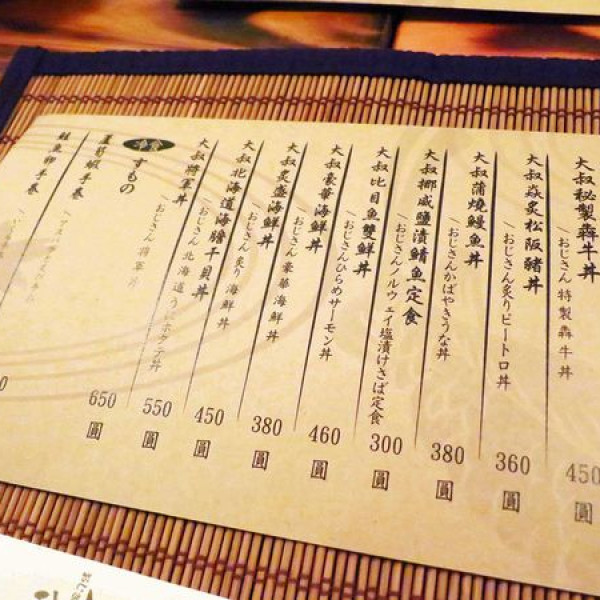 大叔秘製犇牛丼
おじさん 特製犇牛丼
450圓
大叔焱炙松阪豬丼
おじさん炙りピートロ丼
360圓
大叔蒲燒鰻魚丼
おじさんかばやきうな丼
380圓
大叔挪威鹽漬鯖魚定食
おじさんノルウェイ塩漬けさば定食
300圓
大叔比目魚雙鮮丼
おじさんひらめサーモン丼
460圓
大叔豪華海鮮丼
おじさん 豪華海鮮丼
380圓
大叔炙盛海鮮丼
おじさん 炙り海鮮丼
450圓
大叔北海道海膽干貝丼
おじさん 北海道うにホタテ丼
550圓
大叔將軍丼
おじさん 將軍丼
650圓
すもの
蘆筍蝦手卷
鮭魚卵手卷